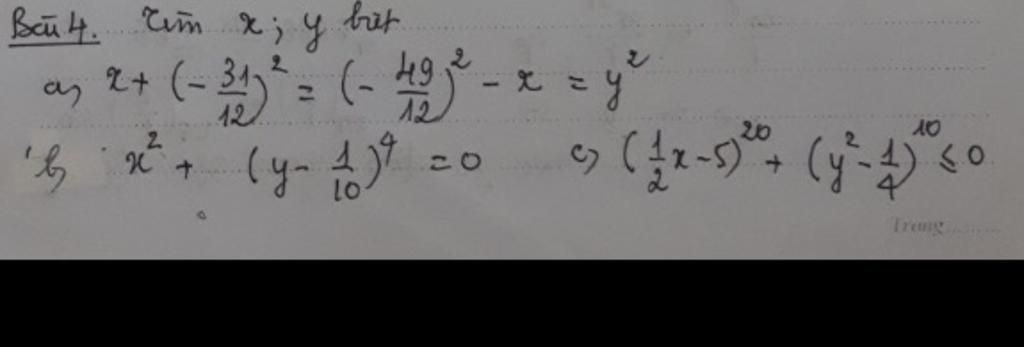 Bài 4. Tìm x ; y biết
a, x + (- 31/12)² = (- 49/12)² - x = y²
b, x² + (y - 1/10)⁴ = 0 c, (1/2 x - 5)²⁰ + (y² - 1/4)¹⁰ ≤ 0
Trang